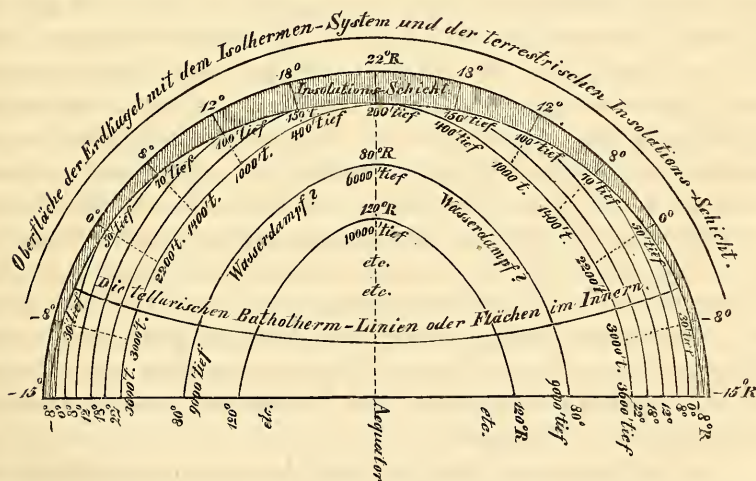 Oberfläche der Erdkugel mit dem Isothermen-System und der terrestrischen Insolations-Schicht.
-15° -8° 0° 8° 12° 18° 22°R 18° 12° 8° 0° -8° -15°R
Insolations-Schicht.
30' tief 50' tief 70' tief 100' tief 150' t. 200' tief 150' tief 100' tief 70' tief 50' tief 30' tief
3600' t. 3000' t. 2200' t. 1400' t. 1000' t. 400' tief 400' tief 1000' t. 1400' t. 2200' t. 3000' t. 3600' tief
80°R
6000' tief
Wasserdampf? Wasserdampf?
120°R
10000' tief
etc.
etc.
Die tellurischen Bathotherm-Linien oder Flächen im Innern.
-8° 0° 8° 12° 18° 22° 80° 9000' tief 120° etc. Aequator etc. 120°R 9000' tief 80° 22° 18° 12° 8° 0° -8°R